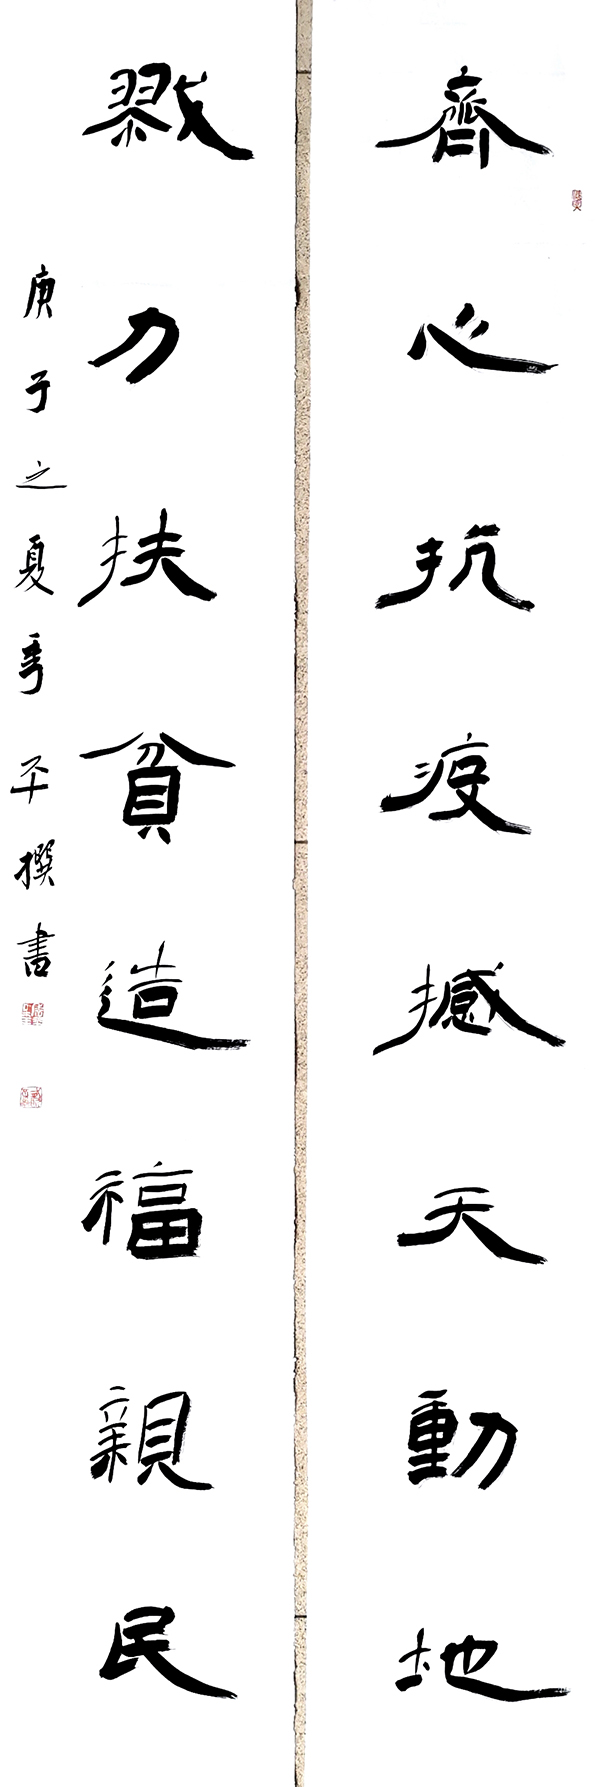 齊心抗疫撼天動地
戮力扶貧造福親民
庚子之夏秀平撰書